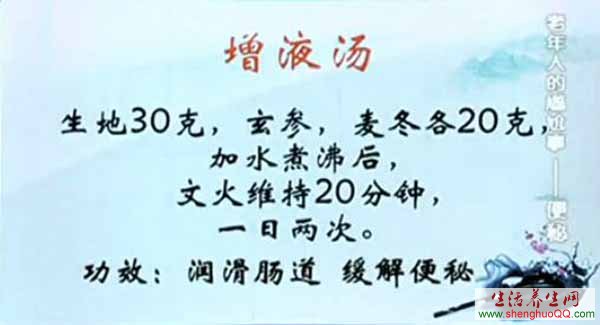 增液汤
生地30克，玄参，麦冬各20克，
加水煮沸后，
文火维持20分钟，
一日两次。
功效：润滑肠道 缓解便秘
老年人的尴尬事——便秘
生活养生网
www.shenghuoQQ.com